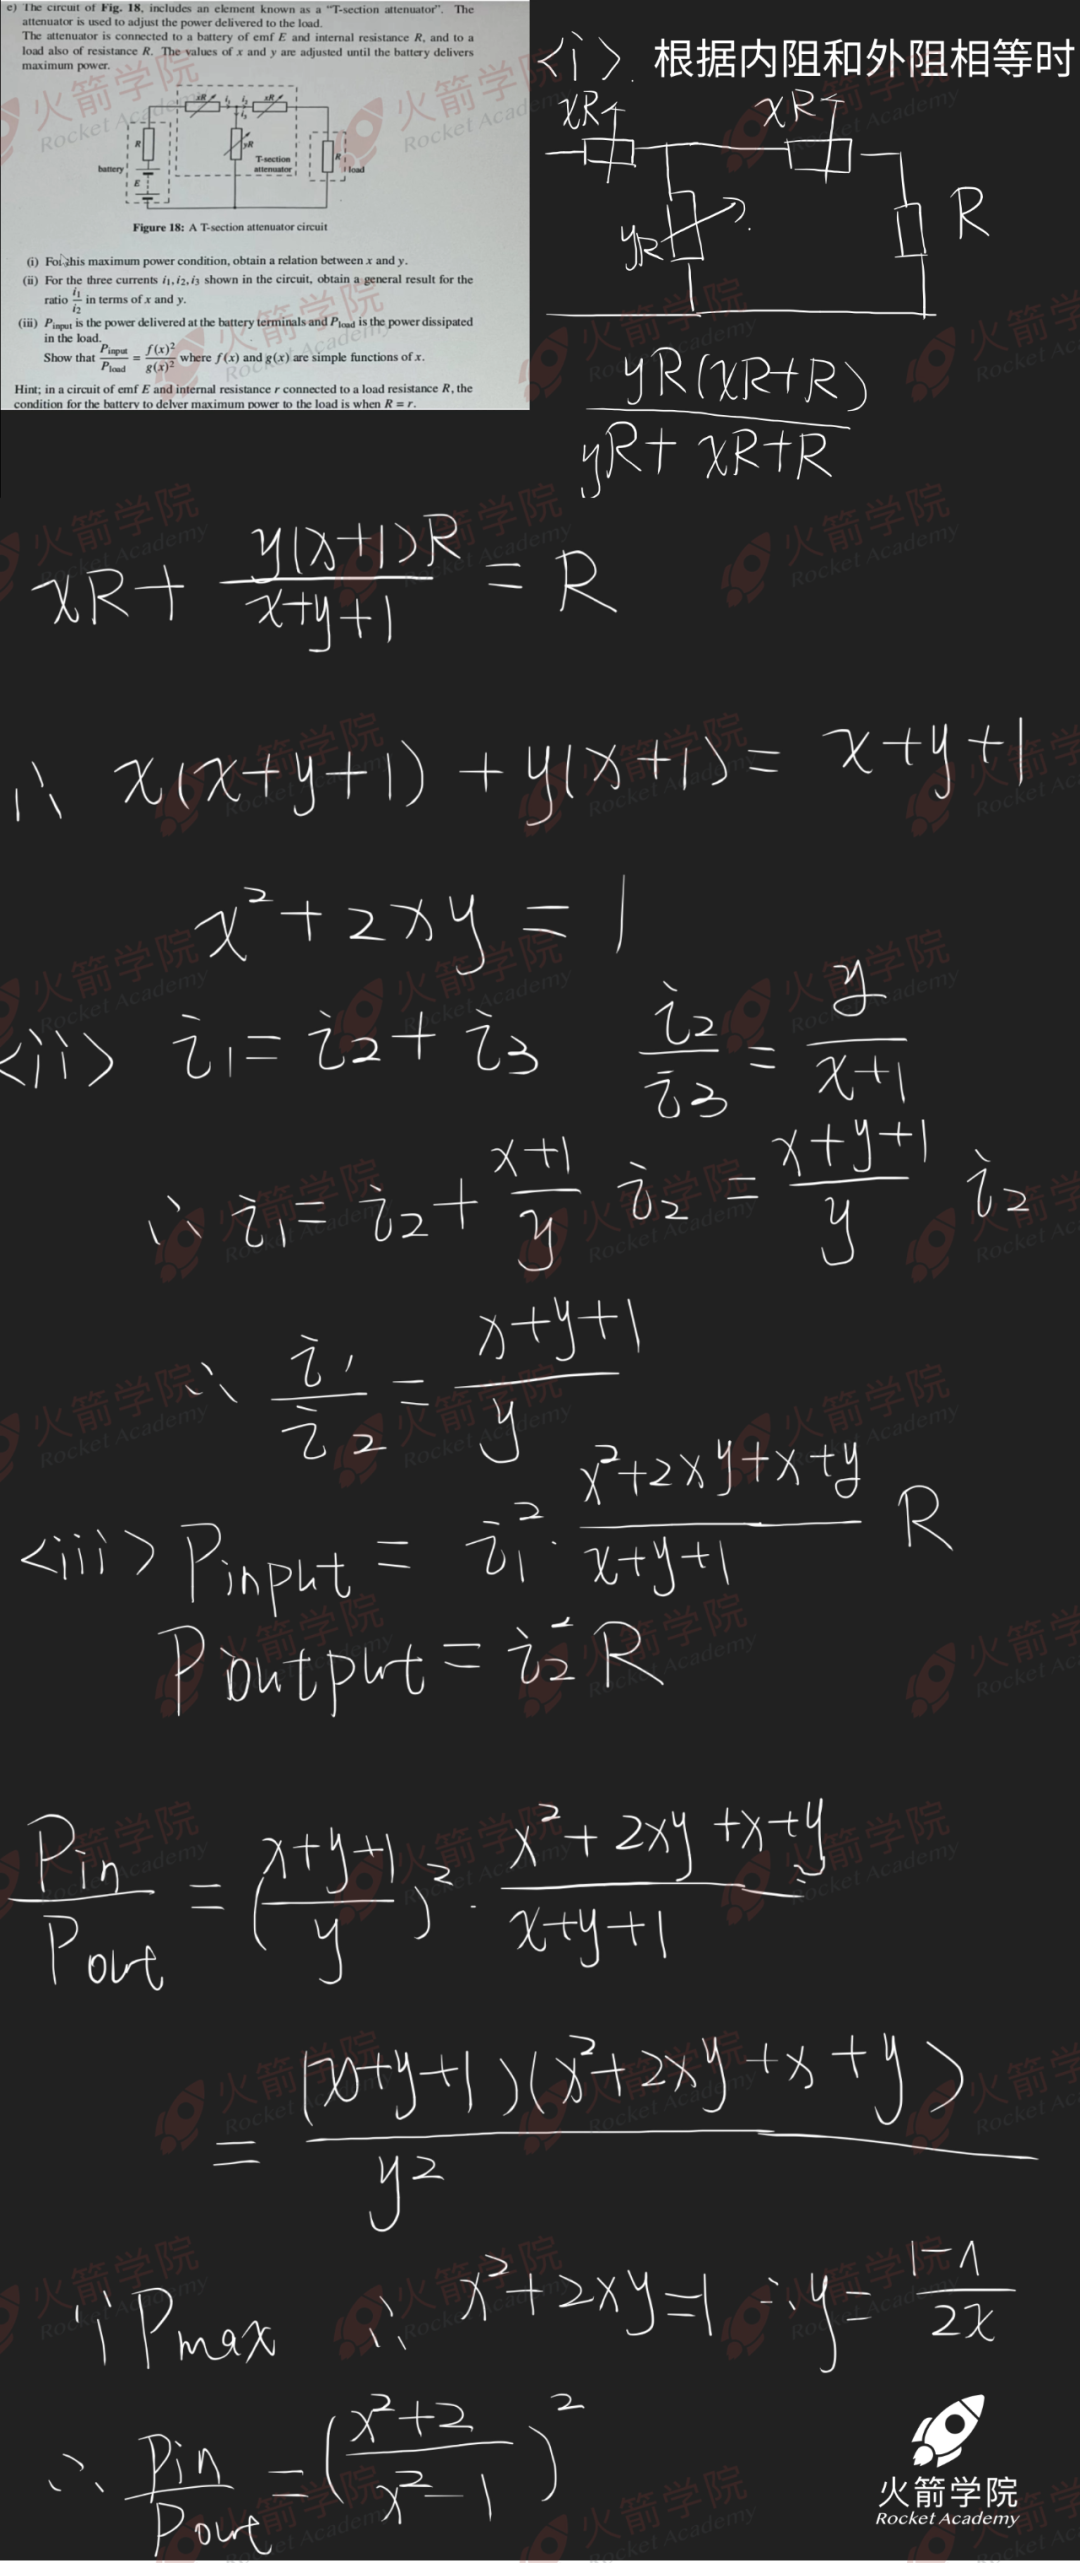 c) The circuit of Fig. 18, includes an element known as a "T-section attenuator". The
attenuator is used to adjust the power delivered to the load.
The attenuator is connected to a battery of emf E and internal resistance R, and to a
load also of resistance R. The values of x and y are adjusted until the battery delivers
maximum power.
xR i₁ i₂ xR
i₃
R yR R
battery T-section attenuator load
E
Figure 18: A T-section attenuator circuit
(i) For this maximum power condition, obtain a relation between x and y.
(ii) For the three currents i₁, i₂, i₃ shown in the circuit, obtain a general result for the
ratio i₁/i₂ in terms of x and y.
(iii) P_input is the power delivered at the battery terminals and P_load is the power dissipated
in the load.
Show that P_input/P_load = f(x)²/g(x)² where f(x) and g(x) are simple functions of x.
Hint; in a circuit of emf E and internal resistance r connected to a load resistance R, the
condition for the battery to delver maximum power to the load is when R = r.
<i>. 根据内阻和外阻相等时
xR xR
yR R
yR(xR+R)/(yR+xR+R)
xR + y(x+1)R/(x+y+1) = R
∴ x(x+y+1) + y(x+1) = x+y+1
x² + 2xy = 1
<ii> i₁ = i₂ + i₃ i₂/i₃ = y/(x+1)
∴ i₁ = i₂ + (x+1)/y i₂ = (x+y+1)/y i₂
∴ i₁/i₂ = (x+y+1)/y
<iii> Pinput = i₁² · (x²+2xy+x+y)/(x+y+1) R
Poutput = i₂² R
Pin/Pout = ((x+y+1)/y)² · (x²+2xy+x+y)/(x+y+1)
= (x+y+1)(x²+2xy+x+y)/y²
∵ Pmax ∴ x²+2xy=1 ∴ y = (1-1)/2x
∴ Pin/Pout = ((x²+2)/(x²-1))²
火箭学院
Rocket Academy